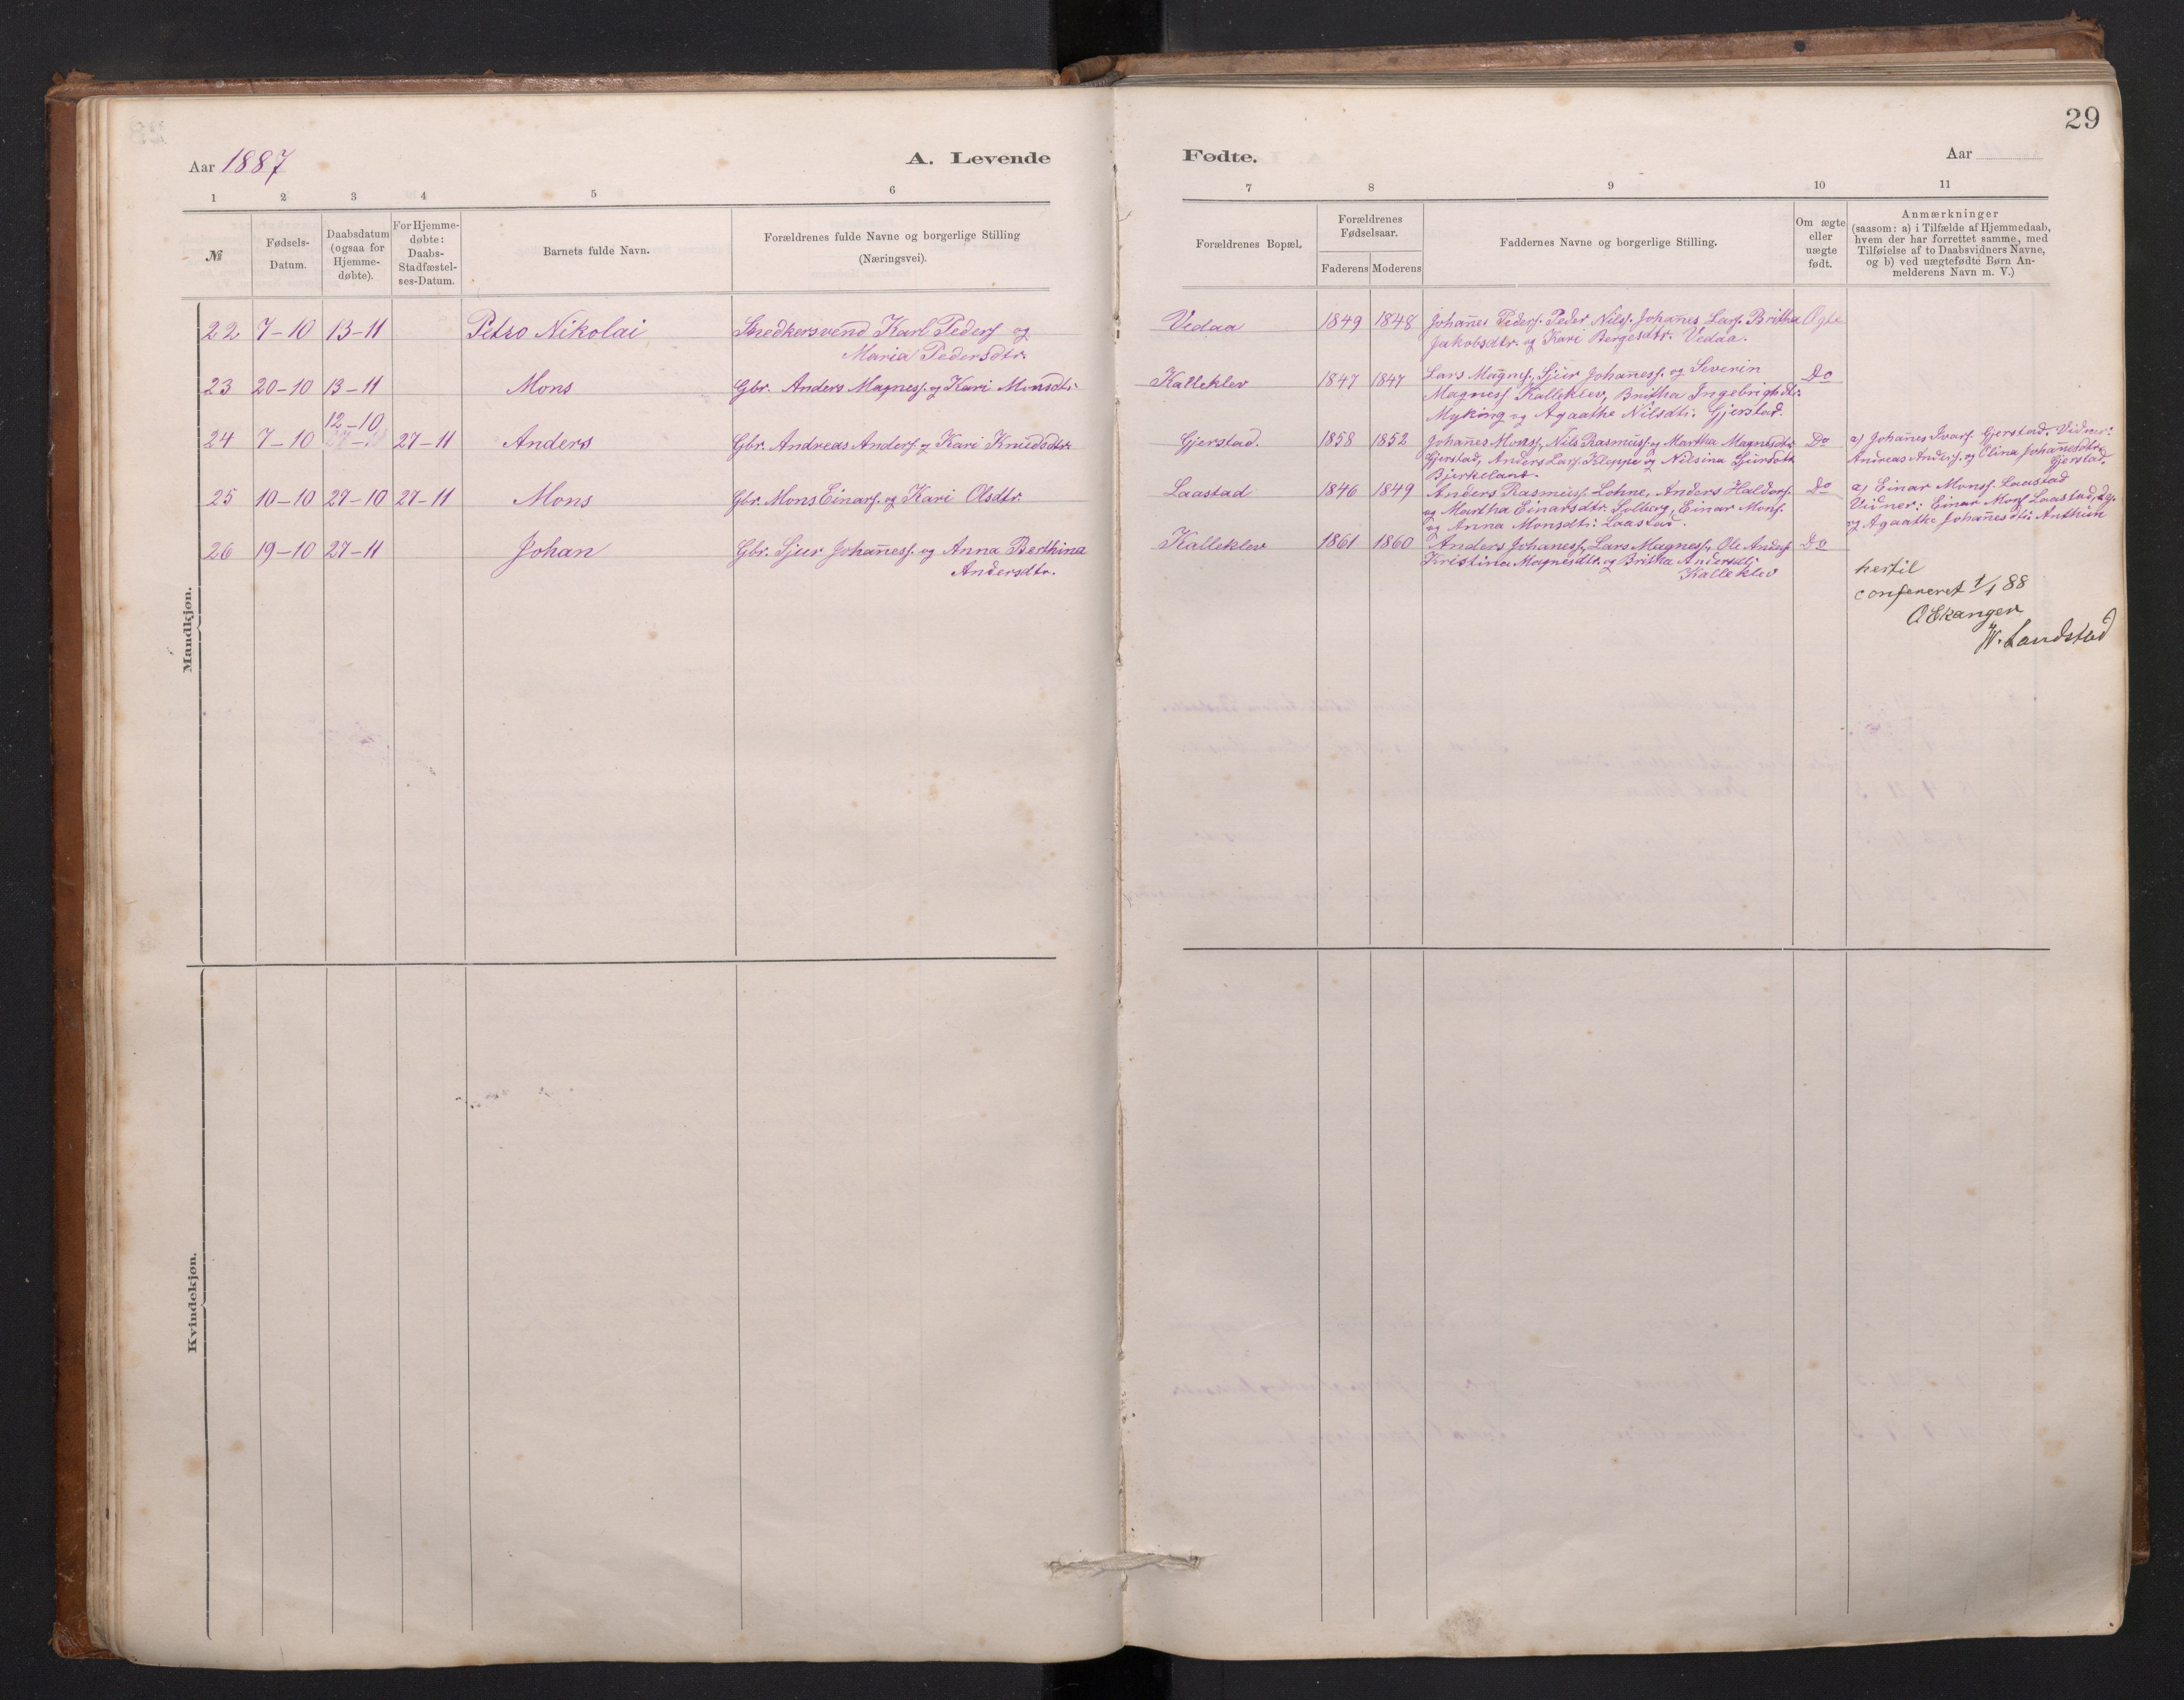 29
Aar 1887
A. Levende
Fødte.
Aar
1 2 3 4 5 6
7 8 9 10 11
№
Fødsels-
Datum.
Daabsdatum
(ogsaa for
Hjemme-
døbte).
For Hjemme-
døbte:
Daabs-
Stadfæstel-
ses-Datum.
Barnets fulde Navn.
Forældrenes fulde Navne og borgerlige Stilling
(Næringsvei).
Forældrenes Bopæl.
Forældrenes
Fødselsaar.
Faderens Moderens
Faddernes Navne og borgerlige Stilling.
Om ægte
eller
uægte
født.
Anmærkninger
(saasom: a) i Tilfælde af Hjemmedaab,
hvem der har forrettet samme, med
Tilføielse af to Daabsvidners Navne,
og b) ved uægtefødte Børn An-
melderens Navn m. V.)
Mandkjøn.
22 7-10 13-11 Petro Nikolai Snedkersvend Karl Peders. og
Maria Pedersdtr.
Vedaa 1849 1848 Johanes Peders. Peder Nils. Johanes Lars. Britha Ægte
Jakobsdtr. og Kari Bergesdtr. Vedaa.
23 20-10 13-11 Mons Gbr. Anders Magness. og Kari Monsdtr.
Kalleklev 1847 1847 Lars Magns., Sjur Johaness. og Severin Do
Magness. Kalleklev, Britha Ingebrigtsdtr.
Myking og Agaathe Nilsdtr. Gjerstad.
12-10
24 7-10 27-11 Anders Gbr. Andreas Anders. og Kari Knudsdtr.
Gjerstad. 1858 1852 Johanes Mons., Nils Rasmuss. og Martha Magnesdtr. Do
Gjerstad, Anders Lars. Kleppe og Nilsina Sjursdtr.
Bjerkeland.
a) Johanes Ivars. Gjerstad. Vidner:
Andreas Anders. og Elina Johanesdtr.
Gjerstad.
25 10-10 27-10 27-11 Mons Gbr. Mons Einars. og Kari Olsdtr.
Laastad 1846 1849 Anders Rasmuss. Lohne, Anders Haldors. Do
og Martha Einarsdtr. Solberg, Einar Mons.
og Anna Monsdtr. Laastad.
a) Einar Mons. Laastad
Vidner: Einar Mons. Laastad,
og Agaathe Johanesdtr. Anthun
26 19-10 27-11 Johan Gbr. Sjur Johaness. og Anna Berthina
Andersdtr.
Kalleklev 1861 1860 Anders Johaness., Lars Magness., Ole Anders. Do
Kristina Magnesdtr. og Britha Andersdtr.
Kalleklev
hertil
confereret 1/1 88
O Ekanger
W. Landstad
Kvindekjøn.